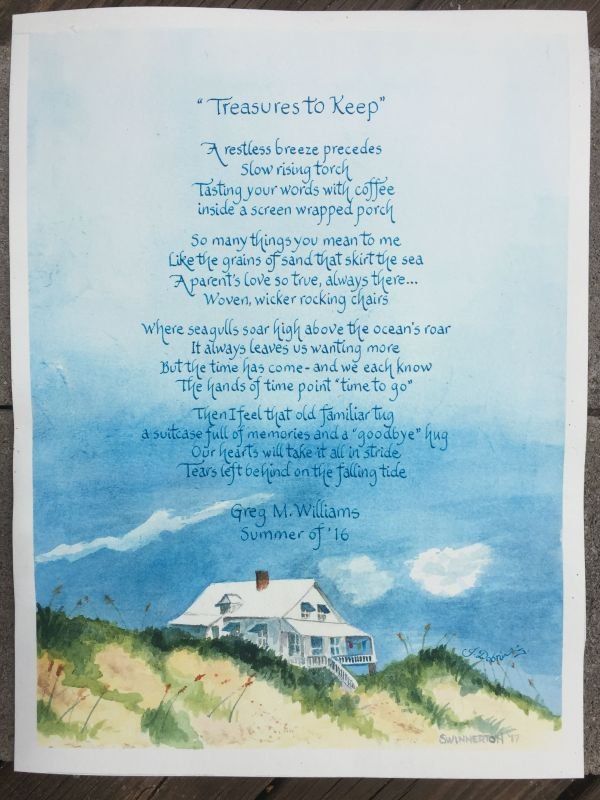 "Treasures to Keep"
A restless breeze precedes
Slow rising torch
Tasting your words with coffee
inside a screen wrapped porch
So many things you mean to me
Like the grains of sand that skirt the sea
A parent's love so true, always there...
Woven, wicker rocking chairs
Where seagulls soar high above the ocean's roar
It always leaves us wanting more
But the time has come - and we each know
The hands of time point "time to go"
Then I feel that old familiar tug
a suitcase full of memories and a "goodbye" hug
Our hearts will take it all in stride
Tears left behind on the falling tide
Greg M. Williams
Summer of '16
SWINNERTON '17